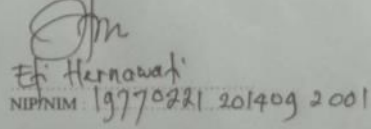 Efi Hernawati
NIP/NIM : 19770221 201409 2 001